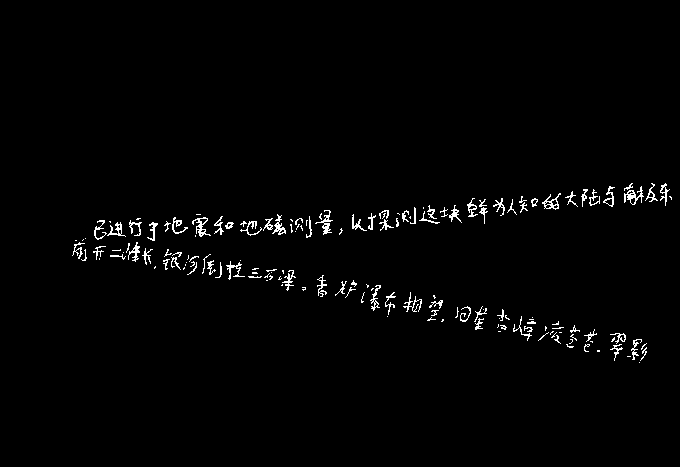 已进行了地震和地磁测量,以探测这块鲜为人知的大陆与南极东
前开二峰长,银河倒挂三石梁。香炉瀑布相望,回崖沓嶂凌苍苍。翠影